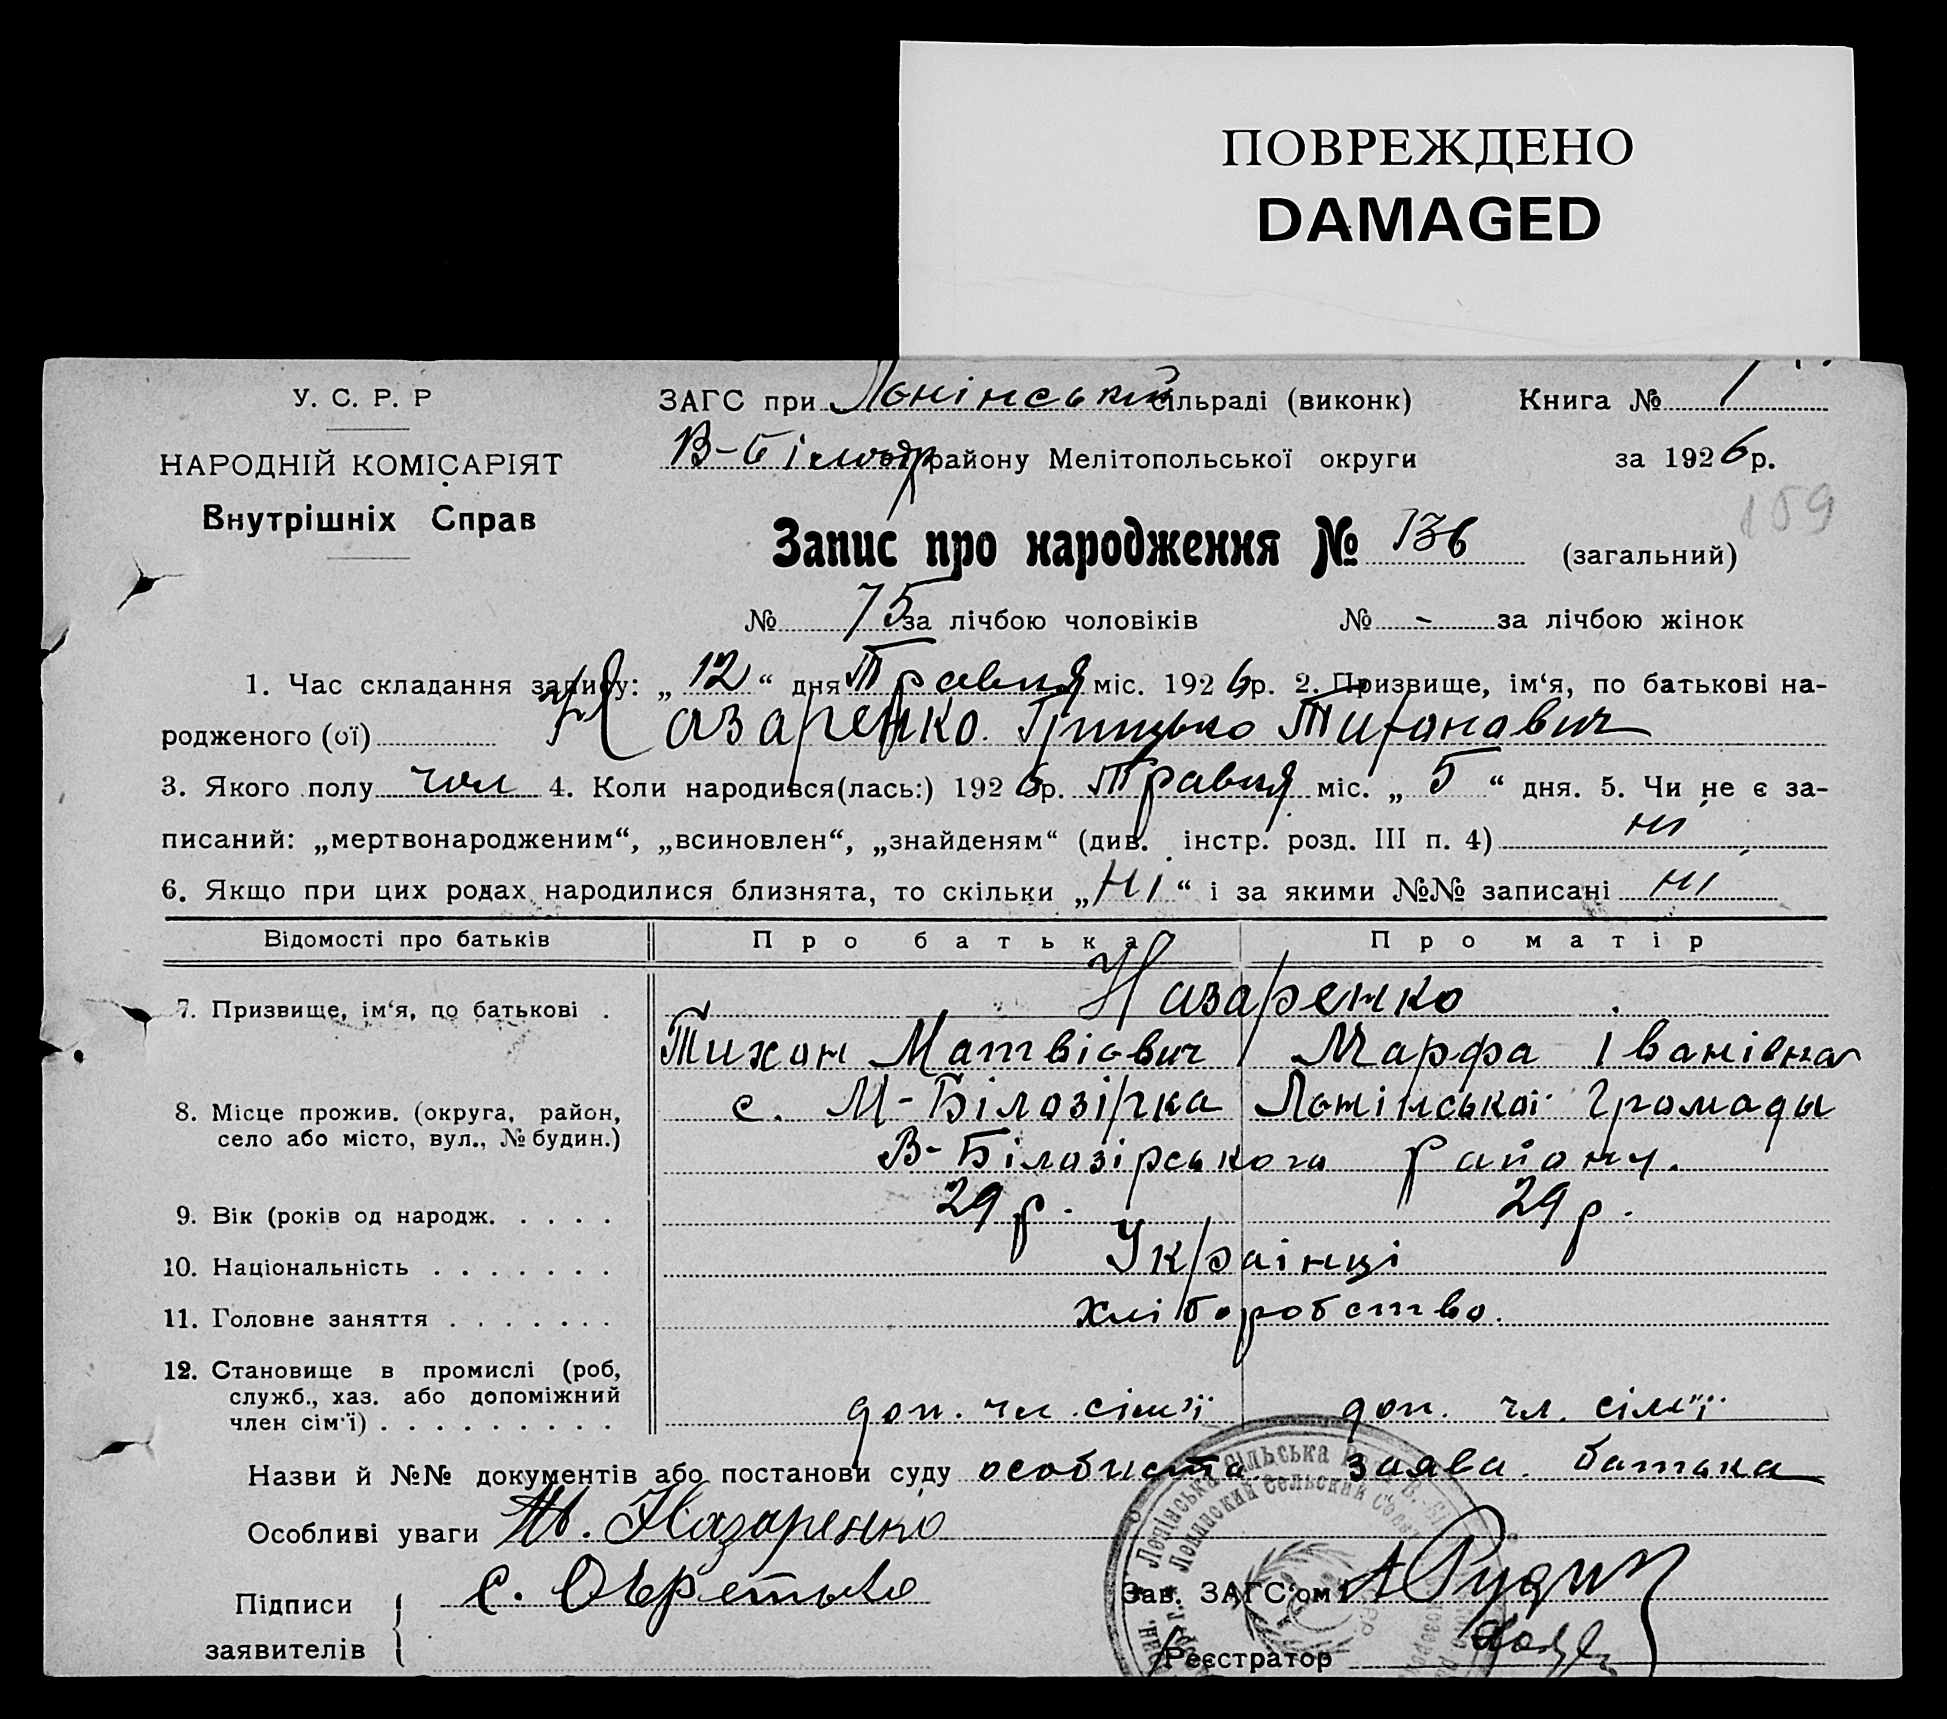 ПОВРЕЖДЕНО
DAMAGED
У. С. Р. Р
ЗАГС при Лонінський сільраді (виконк) Книга № 1
НАРОДНІЙ КОМІСАРІЯТ
В-Білозір району Мелітопольської округи за 1926 р.
Внутрішніх Справ
159
Запис про народження № 136 (загальний)
№ 75 за лічбою чоловіків № - за лічбою жінок
1. Час складання запису: „ 12 “ дня Травня міс. 1926 р. 2. Призвище, ім‘я, по батькові на-
родженого (ої) Назаренко Грицько Тиханавич
3. Якого полу чол 4. Коли народився(лась:) 1926 р. Травня міс. „ 5 “ дня. 5. Чи не є за-
писаний: „мертвонародженим“, „всиновлен“, „знайденям“ (див. інстр. розд. III п. 4) ні
6. Якщо при цих родах народилися близнята, то скільки „ Ні “ і за якими №№ записані ні
Відомості про батьків Про батька Про матір
7. Призвище, ім‘я, по батькові . Назаренко
Тихон Матвіович Марфа Іванівна
8. Місце прожив. (округа, район, с. М-Білозірка Лонінської Громади
село або місто, вул., № будин.)
В-Білозірського району.
9. Вік (років од народж. . . . . 29 р. 29 р.
10. Національність . . . . . . . Українці
11. Головне заняття . . . . . . . хліборобство.
12. Становище в промислі (роб,
служб., хаз. або допоміжний
член сім‘ї) . . . . . . . . . доп. чл. сім'ї доп. чл. сім'ї
Назви й №№ документів або постанови суду особиста заява батька
Особливі уваги Назаренко
Підписи
заявителів
Зав. ЗАГС‘ом
Реєстратор